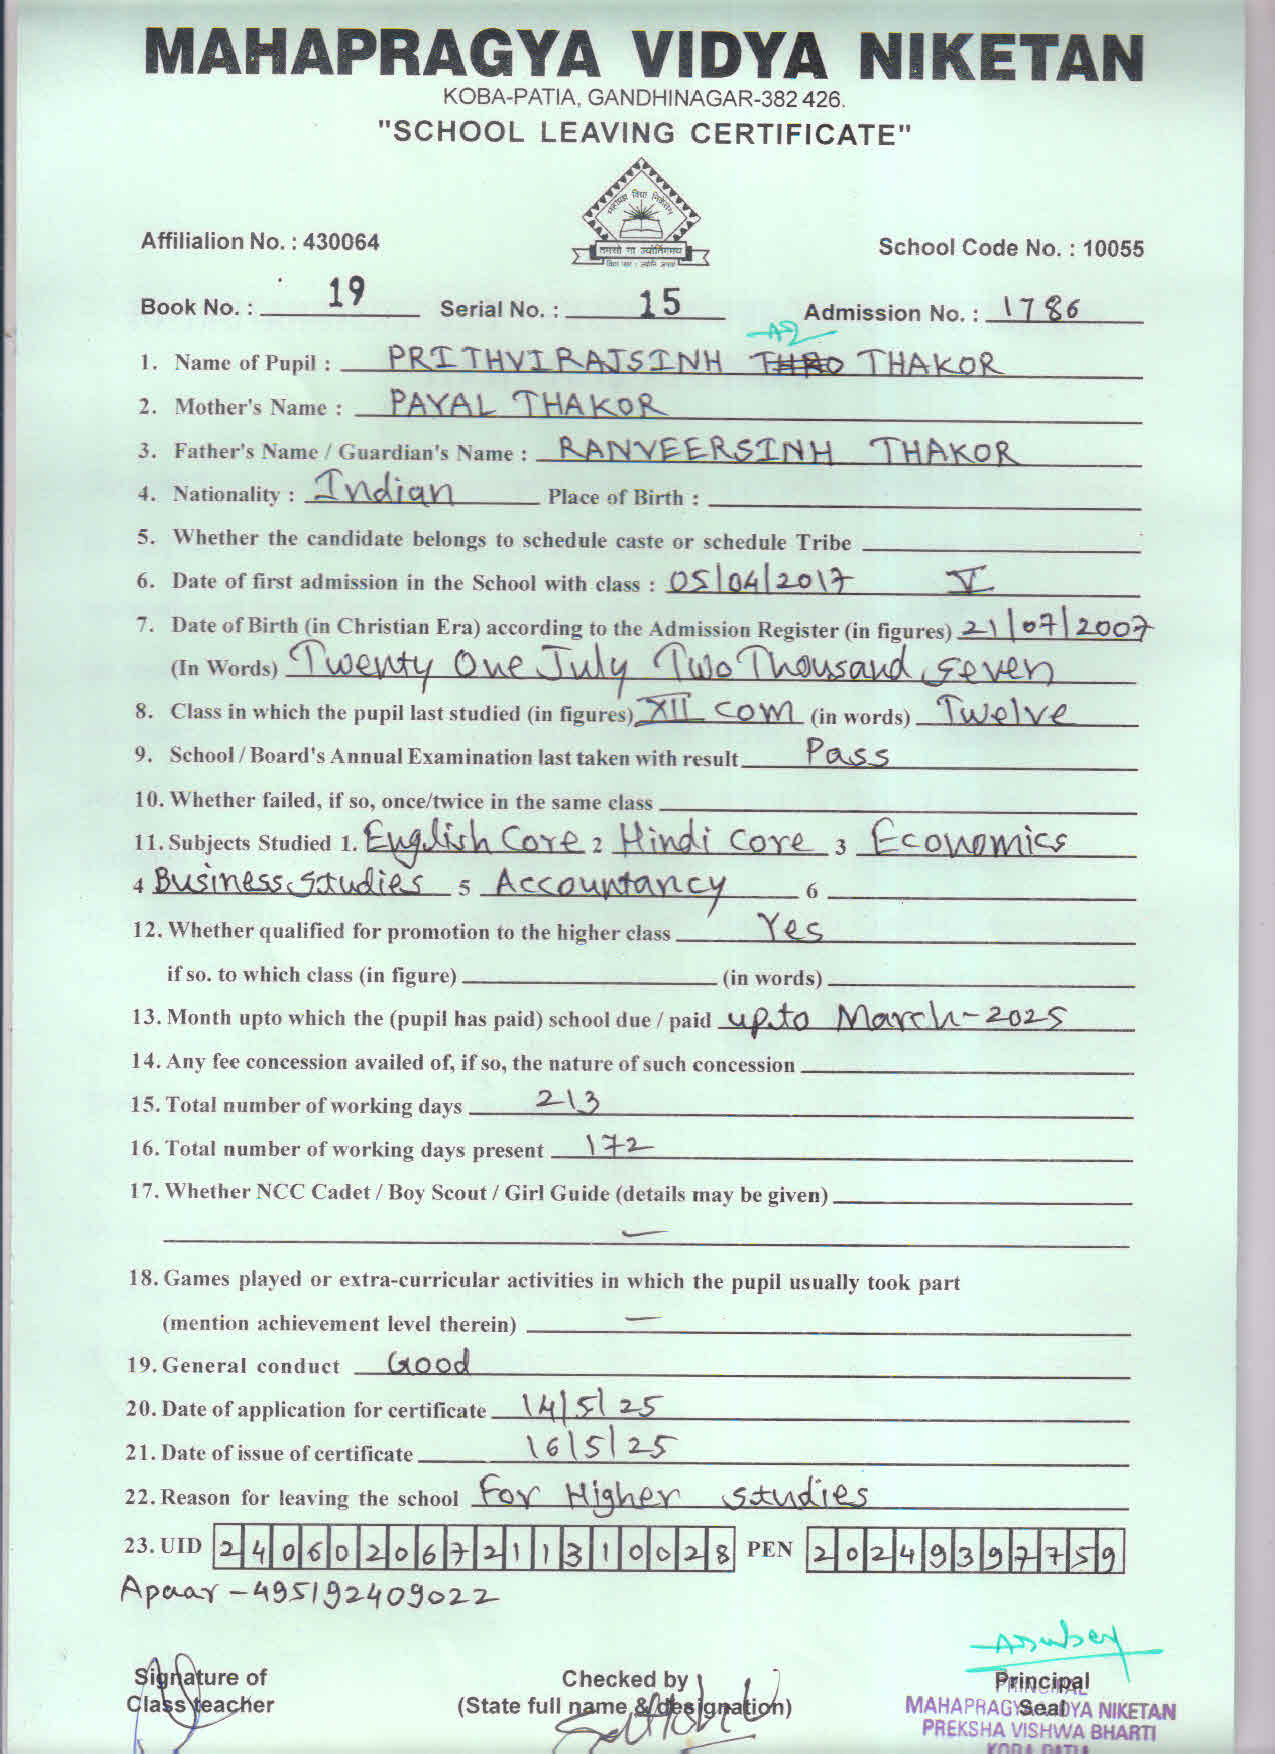 MAHAPRAGYA VIDYA NIKETAN
KOBA-PATIA, GANDHINAGAR-382 426.
"SCHOOL LEAVING CERTIFICATE"
Affilialion No. : 430064
तमसो मा ज्योतिर्गमय
School Code No. : 10055
Book No. : 19 Serial No. : 15 Admission No. : 1786
1. Name of Pupil : PRITHVIRAJSINH THAKOR
2. Mother's Name : PAYAL THAKOR
3. Father's Name / Guardian's Name : RANVEERSINH THAKOR
4. Nationality : Indian Place of Birth :
5. Whether the candidate belongs to schedule caste or schedule Tribe
6. Date of first admission in the School with class : 05/04/2017 V
7. Date of Birth (in Christian Era) according to the Admission Register (in figures) 21/07/2007
(In Words) Twenty One July Two Thousand Seven
8. Class in which the pupil last studied (in figures) XII com (in words) Twelve
9. School / Board's Annual Examination last taken with result Pass
10. Whether failed, if so, once/twice in the same class
11. Subjects Studied 1. English Core 2 Hindi Core 3 Economics
4 Business Studies 5 Accountancy 6
12. Whether qualified for promotion to the higher class Yes
if so. to which class (in figure) (in words)
13. Month upto which the (pupil has paid) school due / paid up to March-2025
14. Any fee concession availed of, if so, the nature of such concession
15. Total number of working days 213
16. Total number of working days present 172
17. Whether NCC Cadet / Boy Scout / Girl Guide (details may be given)
—
18. Games played or extra-curricular activities in which the pupil usually took part
(mention achievement level therein) —
19. General conduct Good
20. Date of application for certificate 14/5/25
21. Date of issue of certificate 16/5/25
22. Reason for leaving the school For Higher Studies
23. UID 240602067211310028 PEN 20249397759
Apaar - 495192409022
Signature of Checked by Principal
Class teacher (State full name & designation) Seal
PRINCIPAL
MAHAPRAGYA VIDYA NIKETAN
PREKSHA VISHWA BHARTI
KOBA PATIA